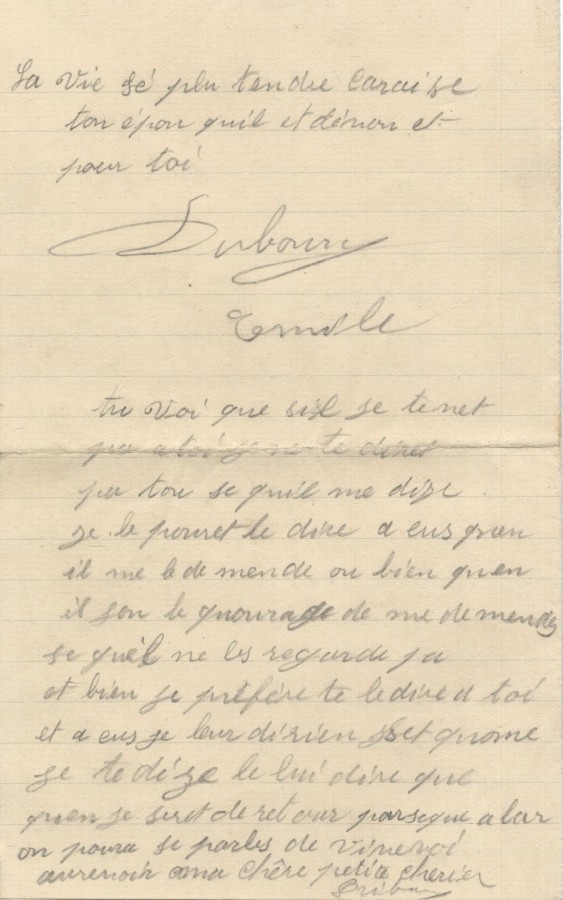 La vie sé plu tendre Caraise
ton épou quil et dévou et
pour toi
Duboury
Emile
tu voi que sil se tenet
pa a toi je ne te diret
pa tou se quil me dize
je le pouret le dire a eus quen
il me le de mende ou bien quen
il son le quourage de me demender
se quèl ne les regarde pa
et bien je préfère te le dire a toi
et a eus je leur dirien set quome
je te dize le lui dire que
quen je seret de retour parseque alor
on poura se parlés de vive voi
aurevoir ma chêre petite cherier